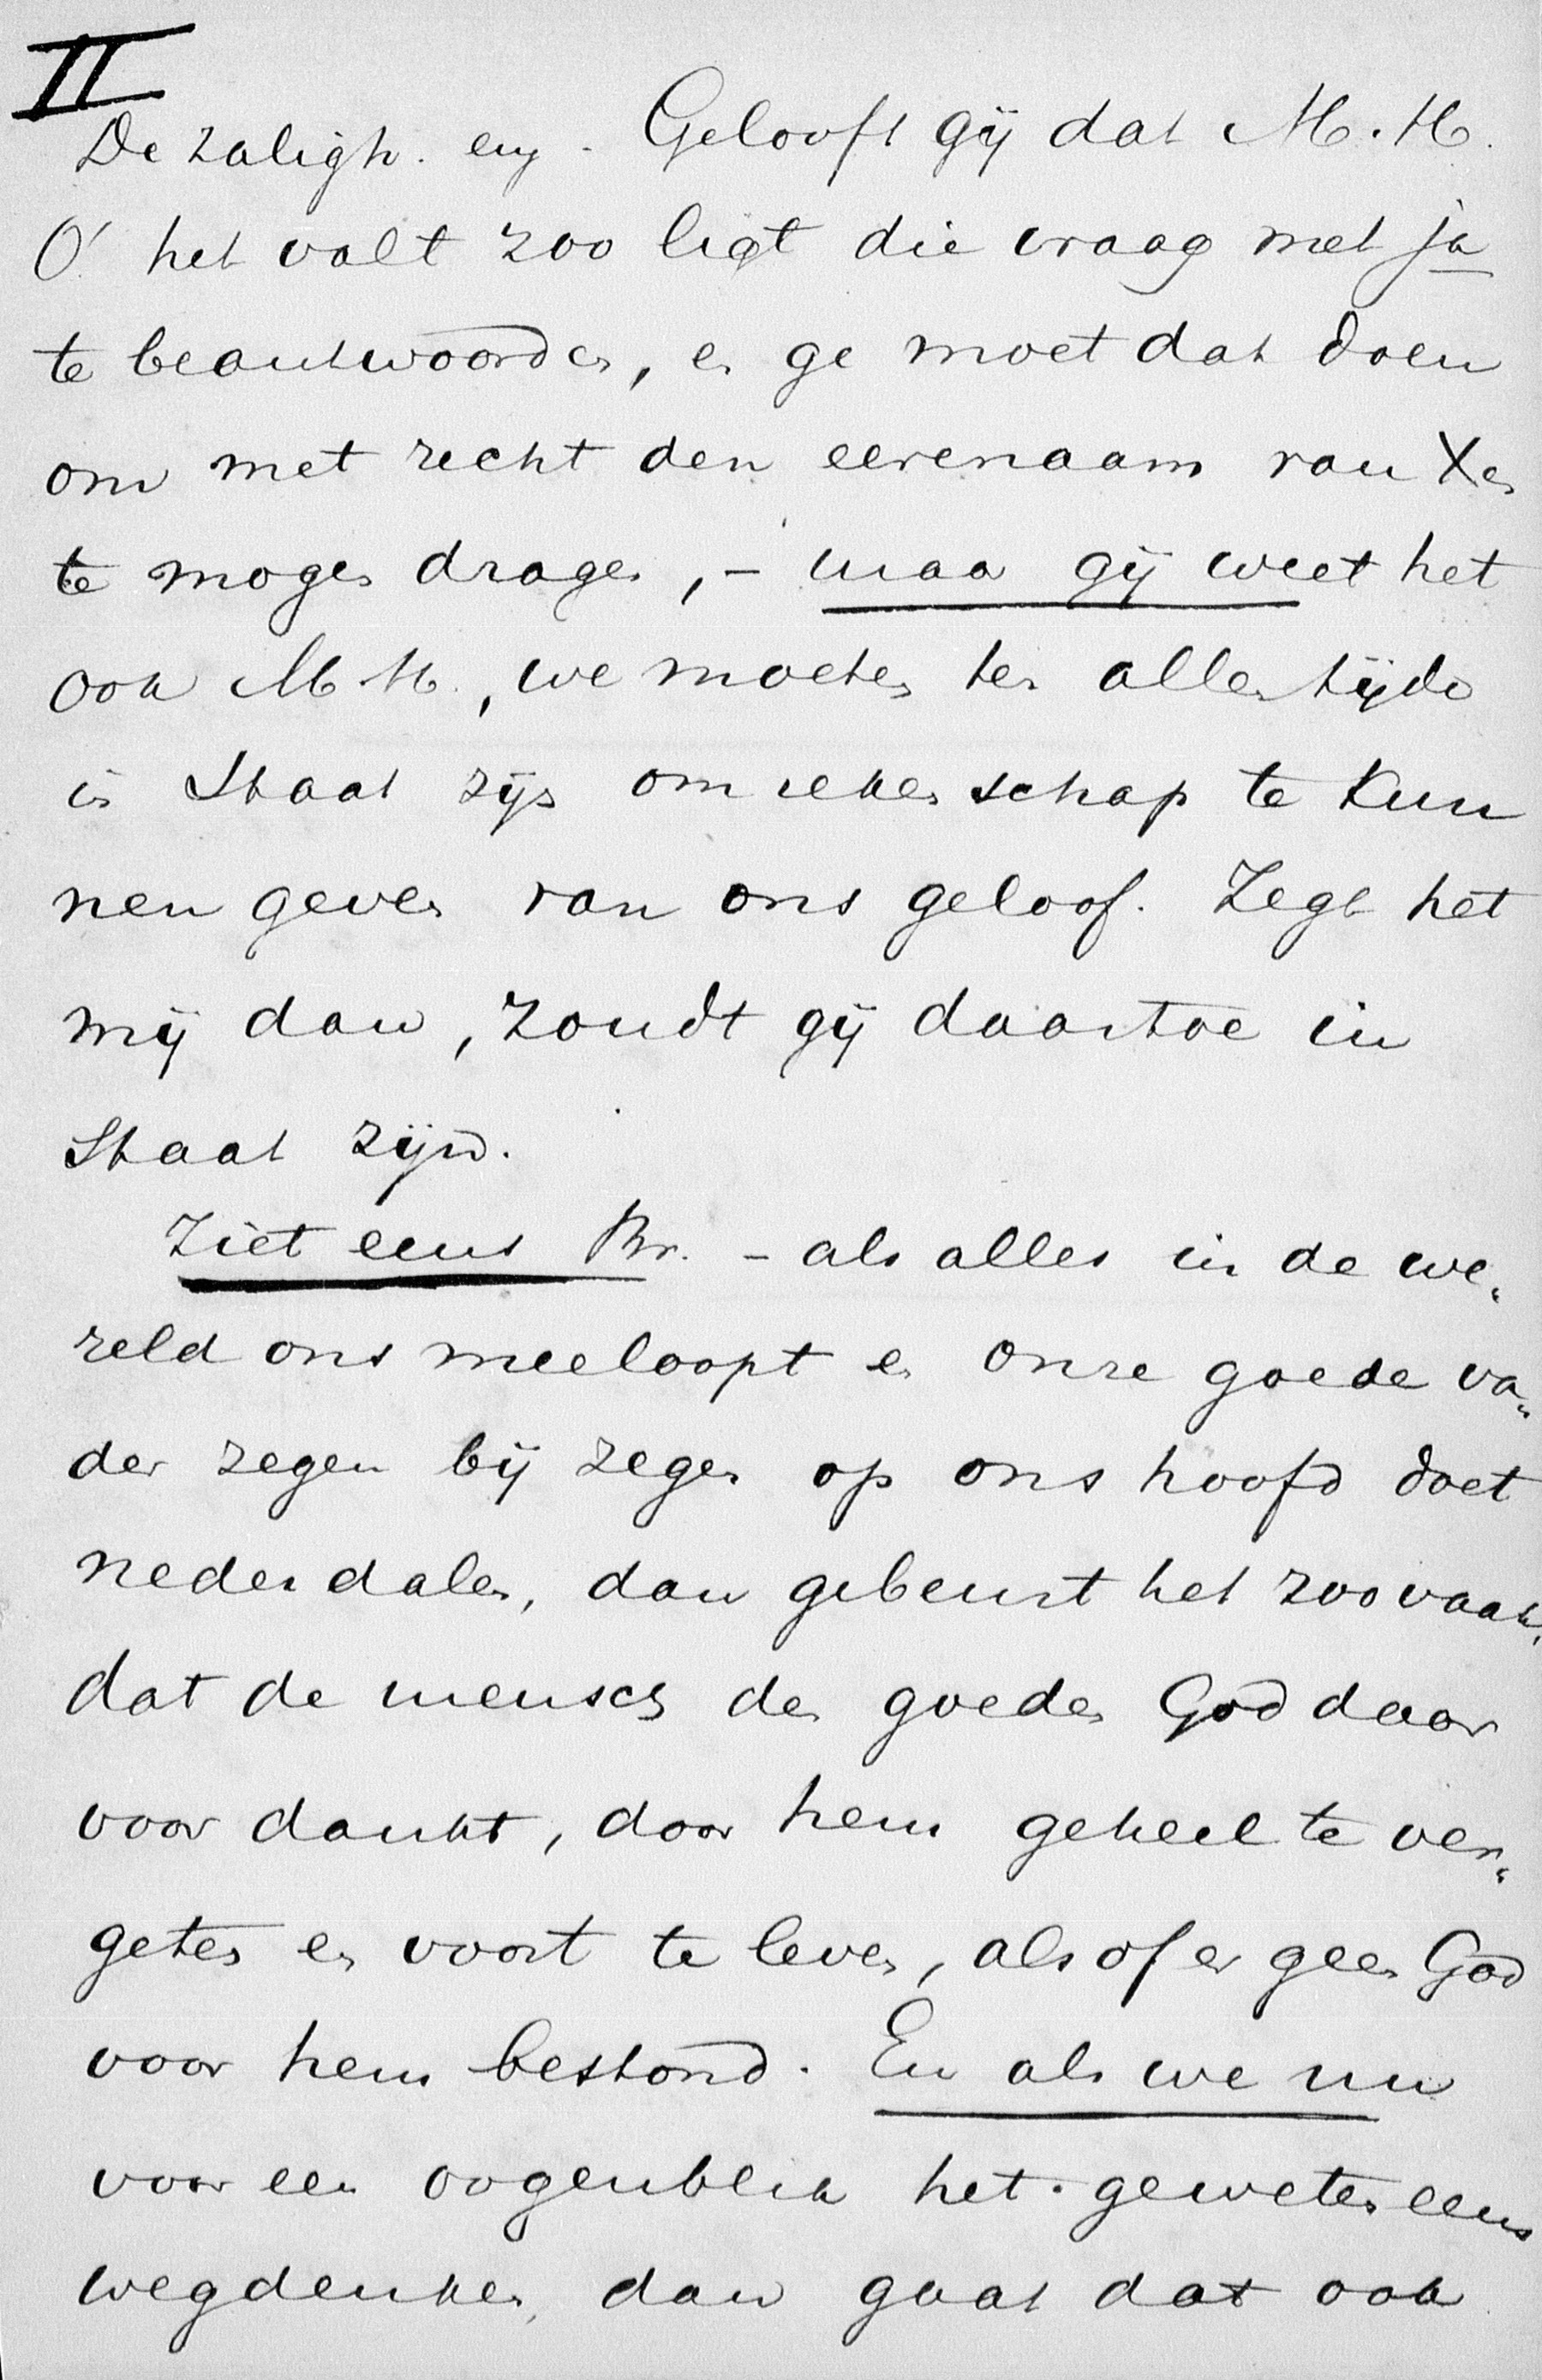 II
De zaligh. enz. Gelooft gij dat M. H.
O! het valt zoo ligt die vraag met ja
te beantwoorden, en ge moet dat doen
om met recht den eerenaam van Xen
te mogen dragen, – maar gij weet het
ook M. H., we moeten ten allen tijde
in staat zijn om rekenschap te kun
nen geven van ons geloof. Zegt het
mij dan, zoudt gij daartoe in
staat zijn.
Ziet eens Br. – als alles in de we„
reld ons meeloopt en onze goede va„
der zegen bij zegen op ons hoofd doet
nederdalen, dan gebeurt het zoo vaak,
dat de mensch den goeden God daar
voor dankt, door hem geheel te ver„
geten en voort te leven, alsof er geen God
voor hem bestond. En als we nu
voor een oogenblik het geweten eens
wegdenken, dan gaat dat ook